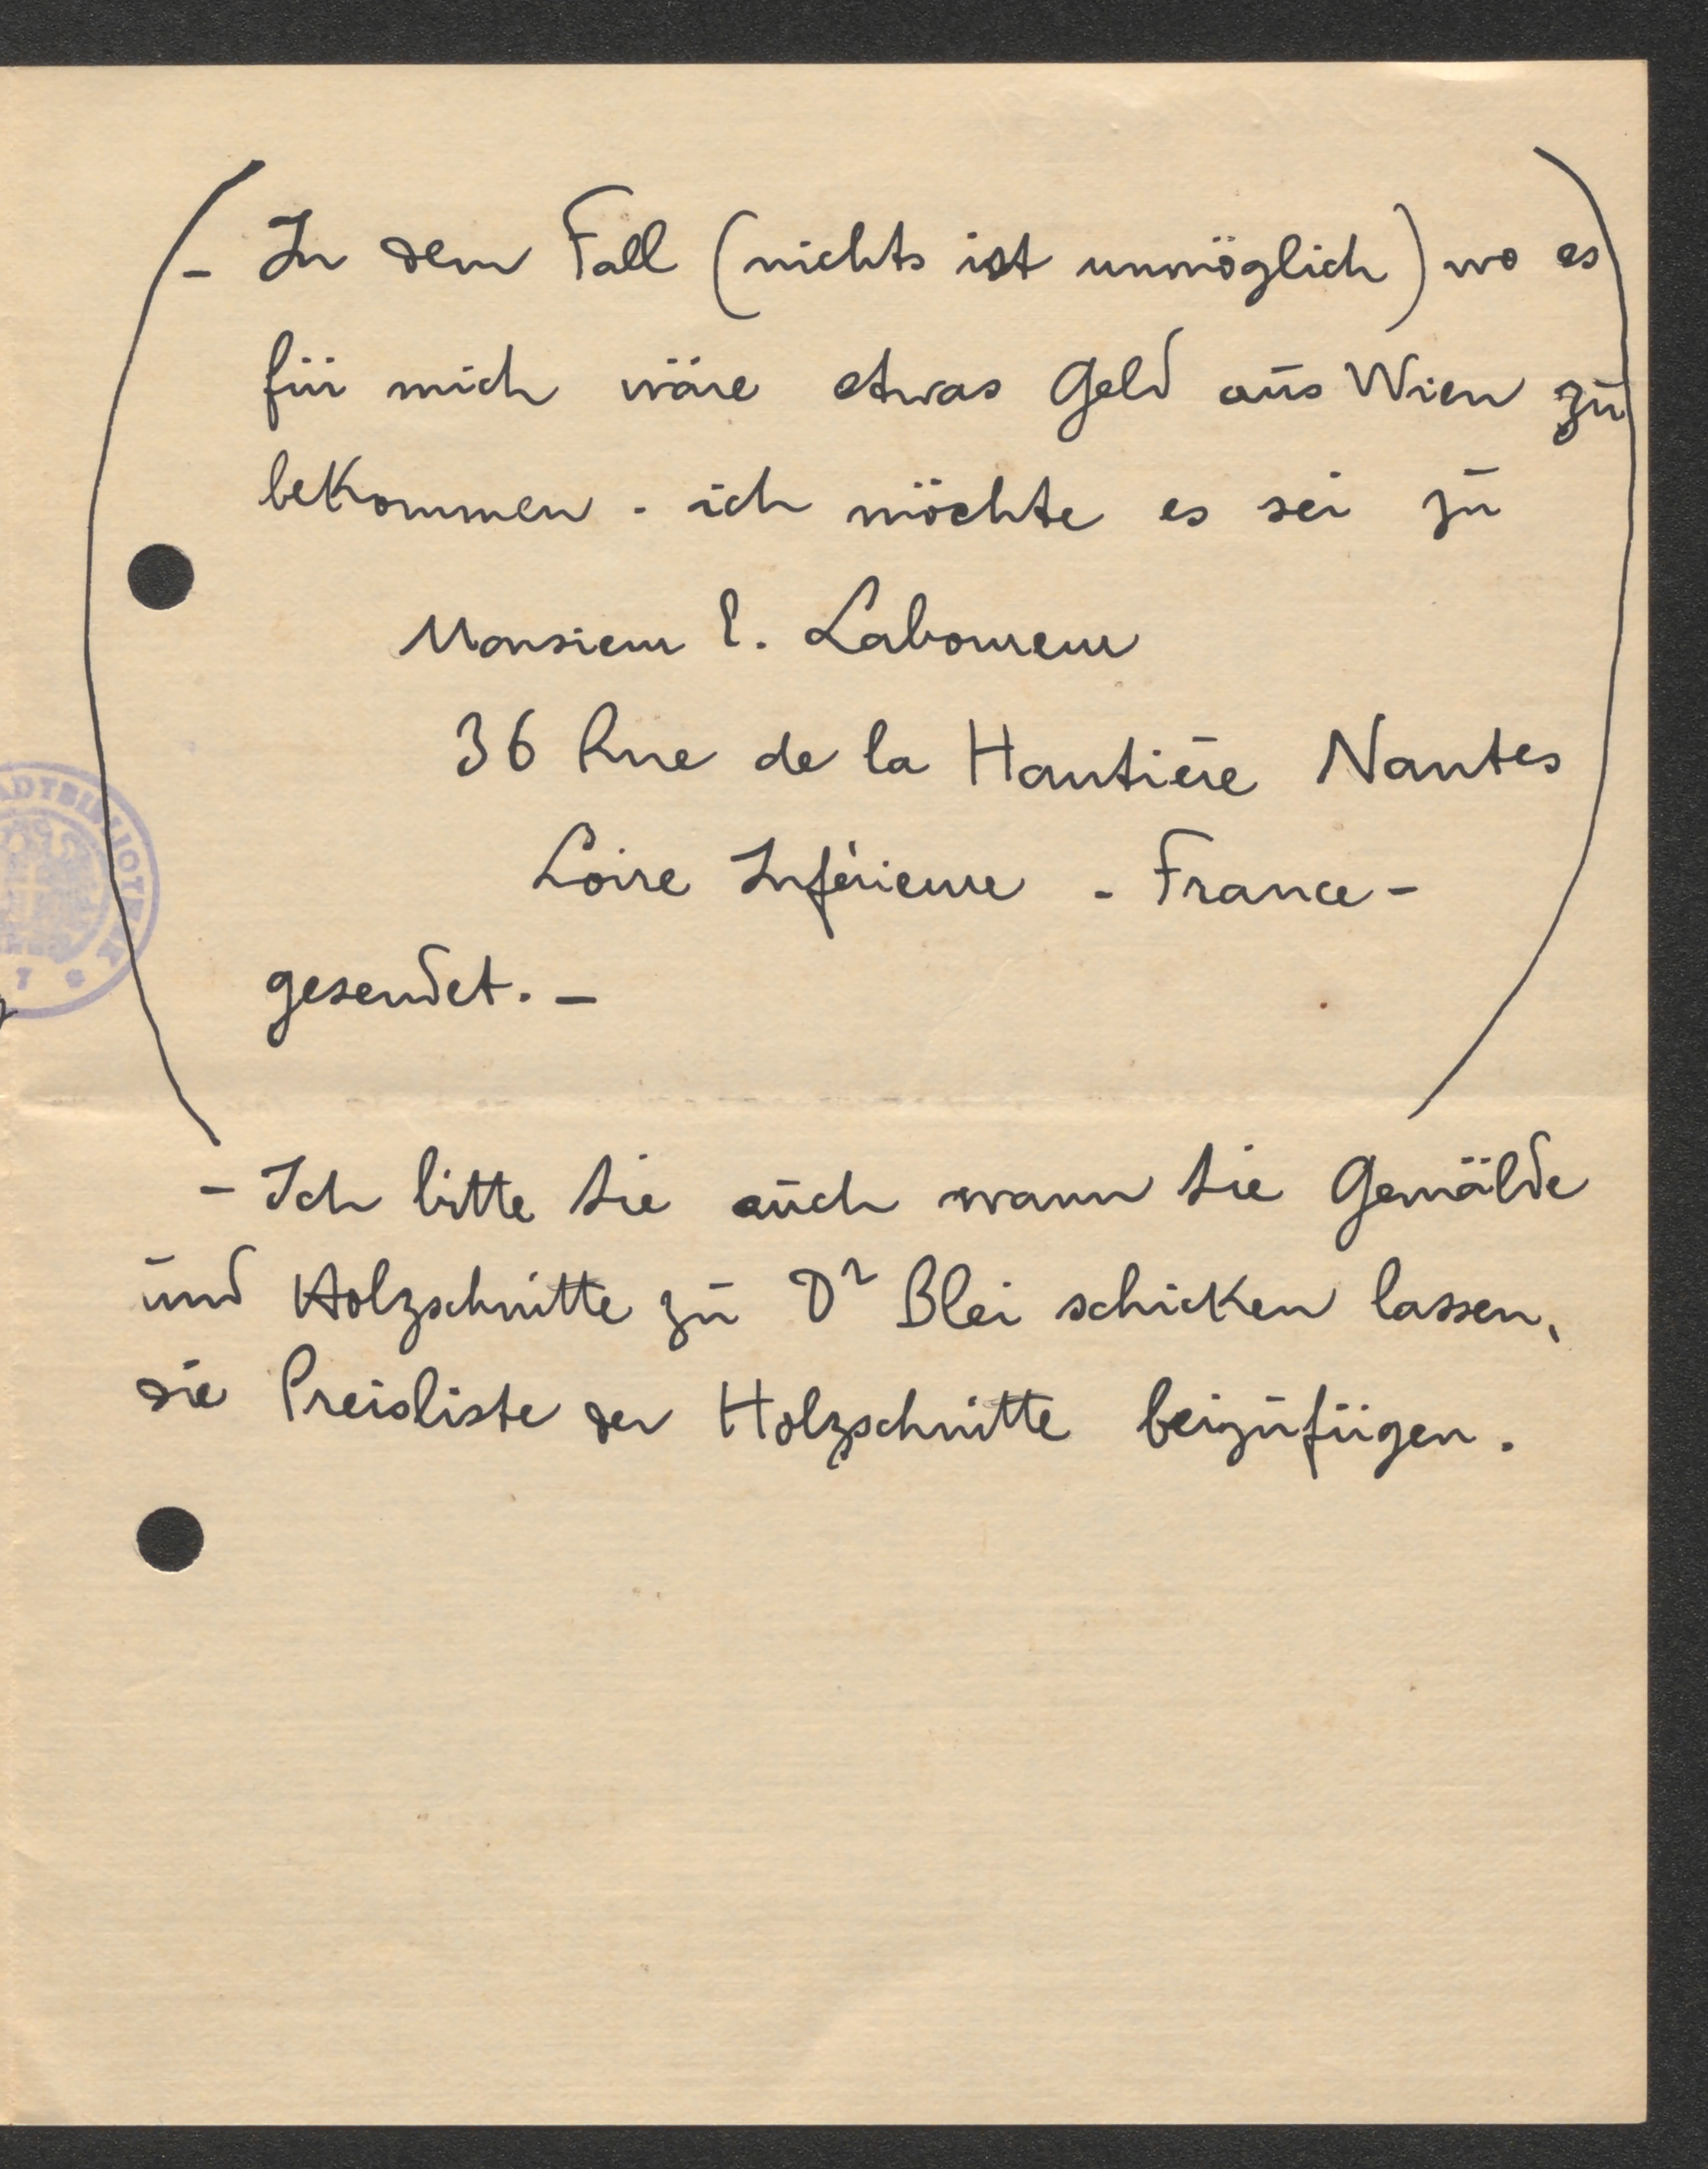 (- In dem Fall (nichts ist unmöglich) wo es
für mich wäre etwas Geld aus Wien zu
bekommen. ich möchte es sei zu
Monsieur E. Laboureur
36 Rue de la Hautière Nantes
Loire Inférieure - France -
gesendet. -)
- Ich bitte Sie auch wann Sie Gemälde
und Holzschnitte zu Dr Blei schicken lassen,
die Preisliste der Holzschnitte beizufügen.